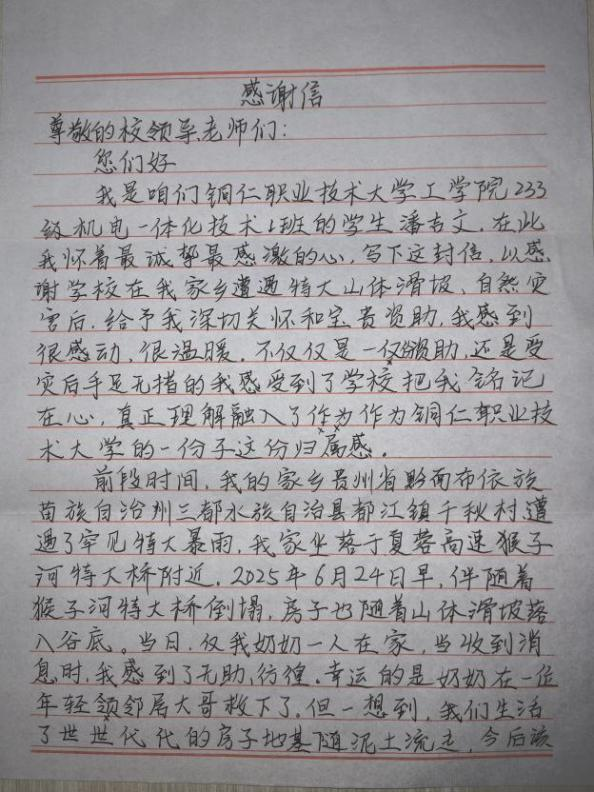 感谢信
尊敬的校领导老师们：
您们好
我是咱们铜仁职业技术大学工学院233
级机电一体化技术1班的学生潘吉文，在此
我怀着最诚挚最感激的心，写下这封信，以感
谢学校在我家乡遭遇特大山体滑坡、自然灾
害后，给予我深切关怀和宝贵资助，我感到
很感动，很温暖。不仅仅是一份资助，还是受
灾后手足无措的我感受到了学校把我铭记
在心，真正理解融入了作为作为铜仁职业技
术大学的一份子这份归属感。
前段时间，我的家乡贵州省黔南布依族
苗族自治州三都水族自治县都江镇千秋村遭
遇了罕见特大暴雨，我家坐落于夏蓉高速猴子
河特大桥附近，2025年6月24日早，伴随着
猴子河特大桥倒塌，房子也随着山体滑坡落
入谷底。当日，仅我奶奶一人在家，当收到消
息时，我感到了无助，彷徨。幸运的是奶奶在一位
年轻邻居大哥救下了。但一想到，我们生活
了世世代代的房子地基随泥土流走，今后该